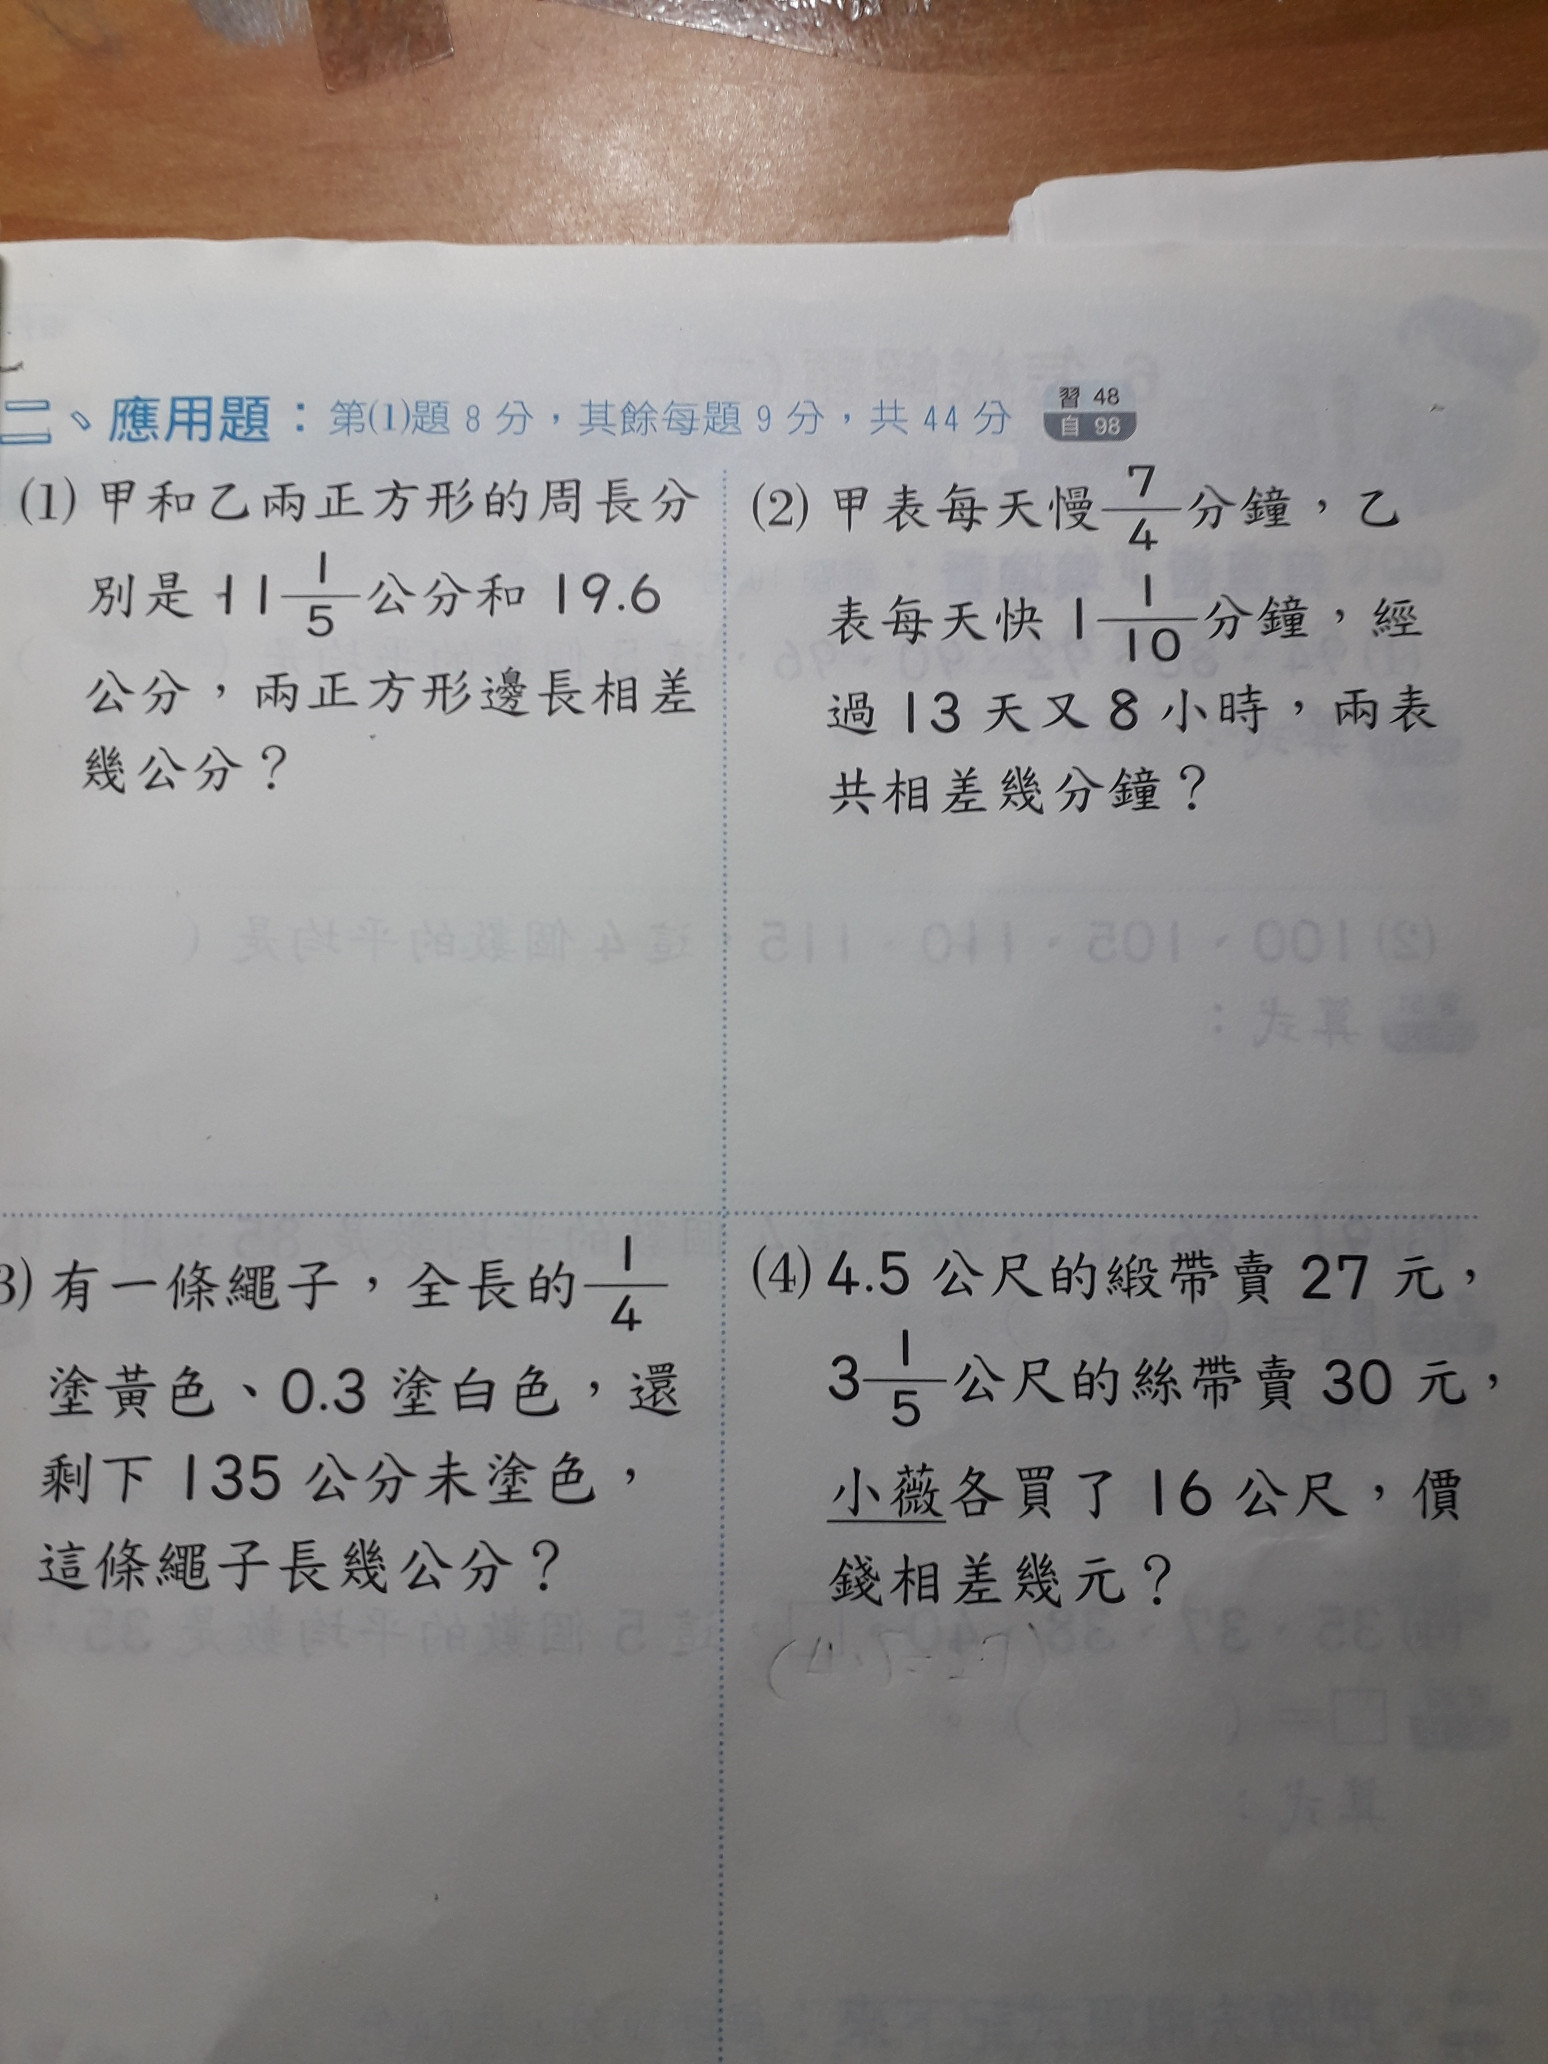 二、應用題：第⑴題 8 分，其餘每題 9 分，共 44 分 習 48
自 98
(1) 甲和乙兩正方形的周長分
別是 11 1/5 公分和 19.6
公分，兩正方形邊長相差
幾公分？
(2) 甲表每天慢 7/4 分鐘，乙
表每天快 1 1/10 分鐘，經
過 13 天又 8 小時，兩表
共相差幾分鐘？
3) 有一條繩子，全長的 1/4
塗黃色、0.3 塗白色，還
剩下 135 公分未塗色，
這條繩子長幾公分？
(4) 4.5 公尺的緞帶賣 27 元，
3 1/5 公尺的絲帶賣 30 元，
小薇各買了 16 公尺，價
錢相差幾元？